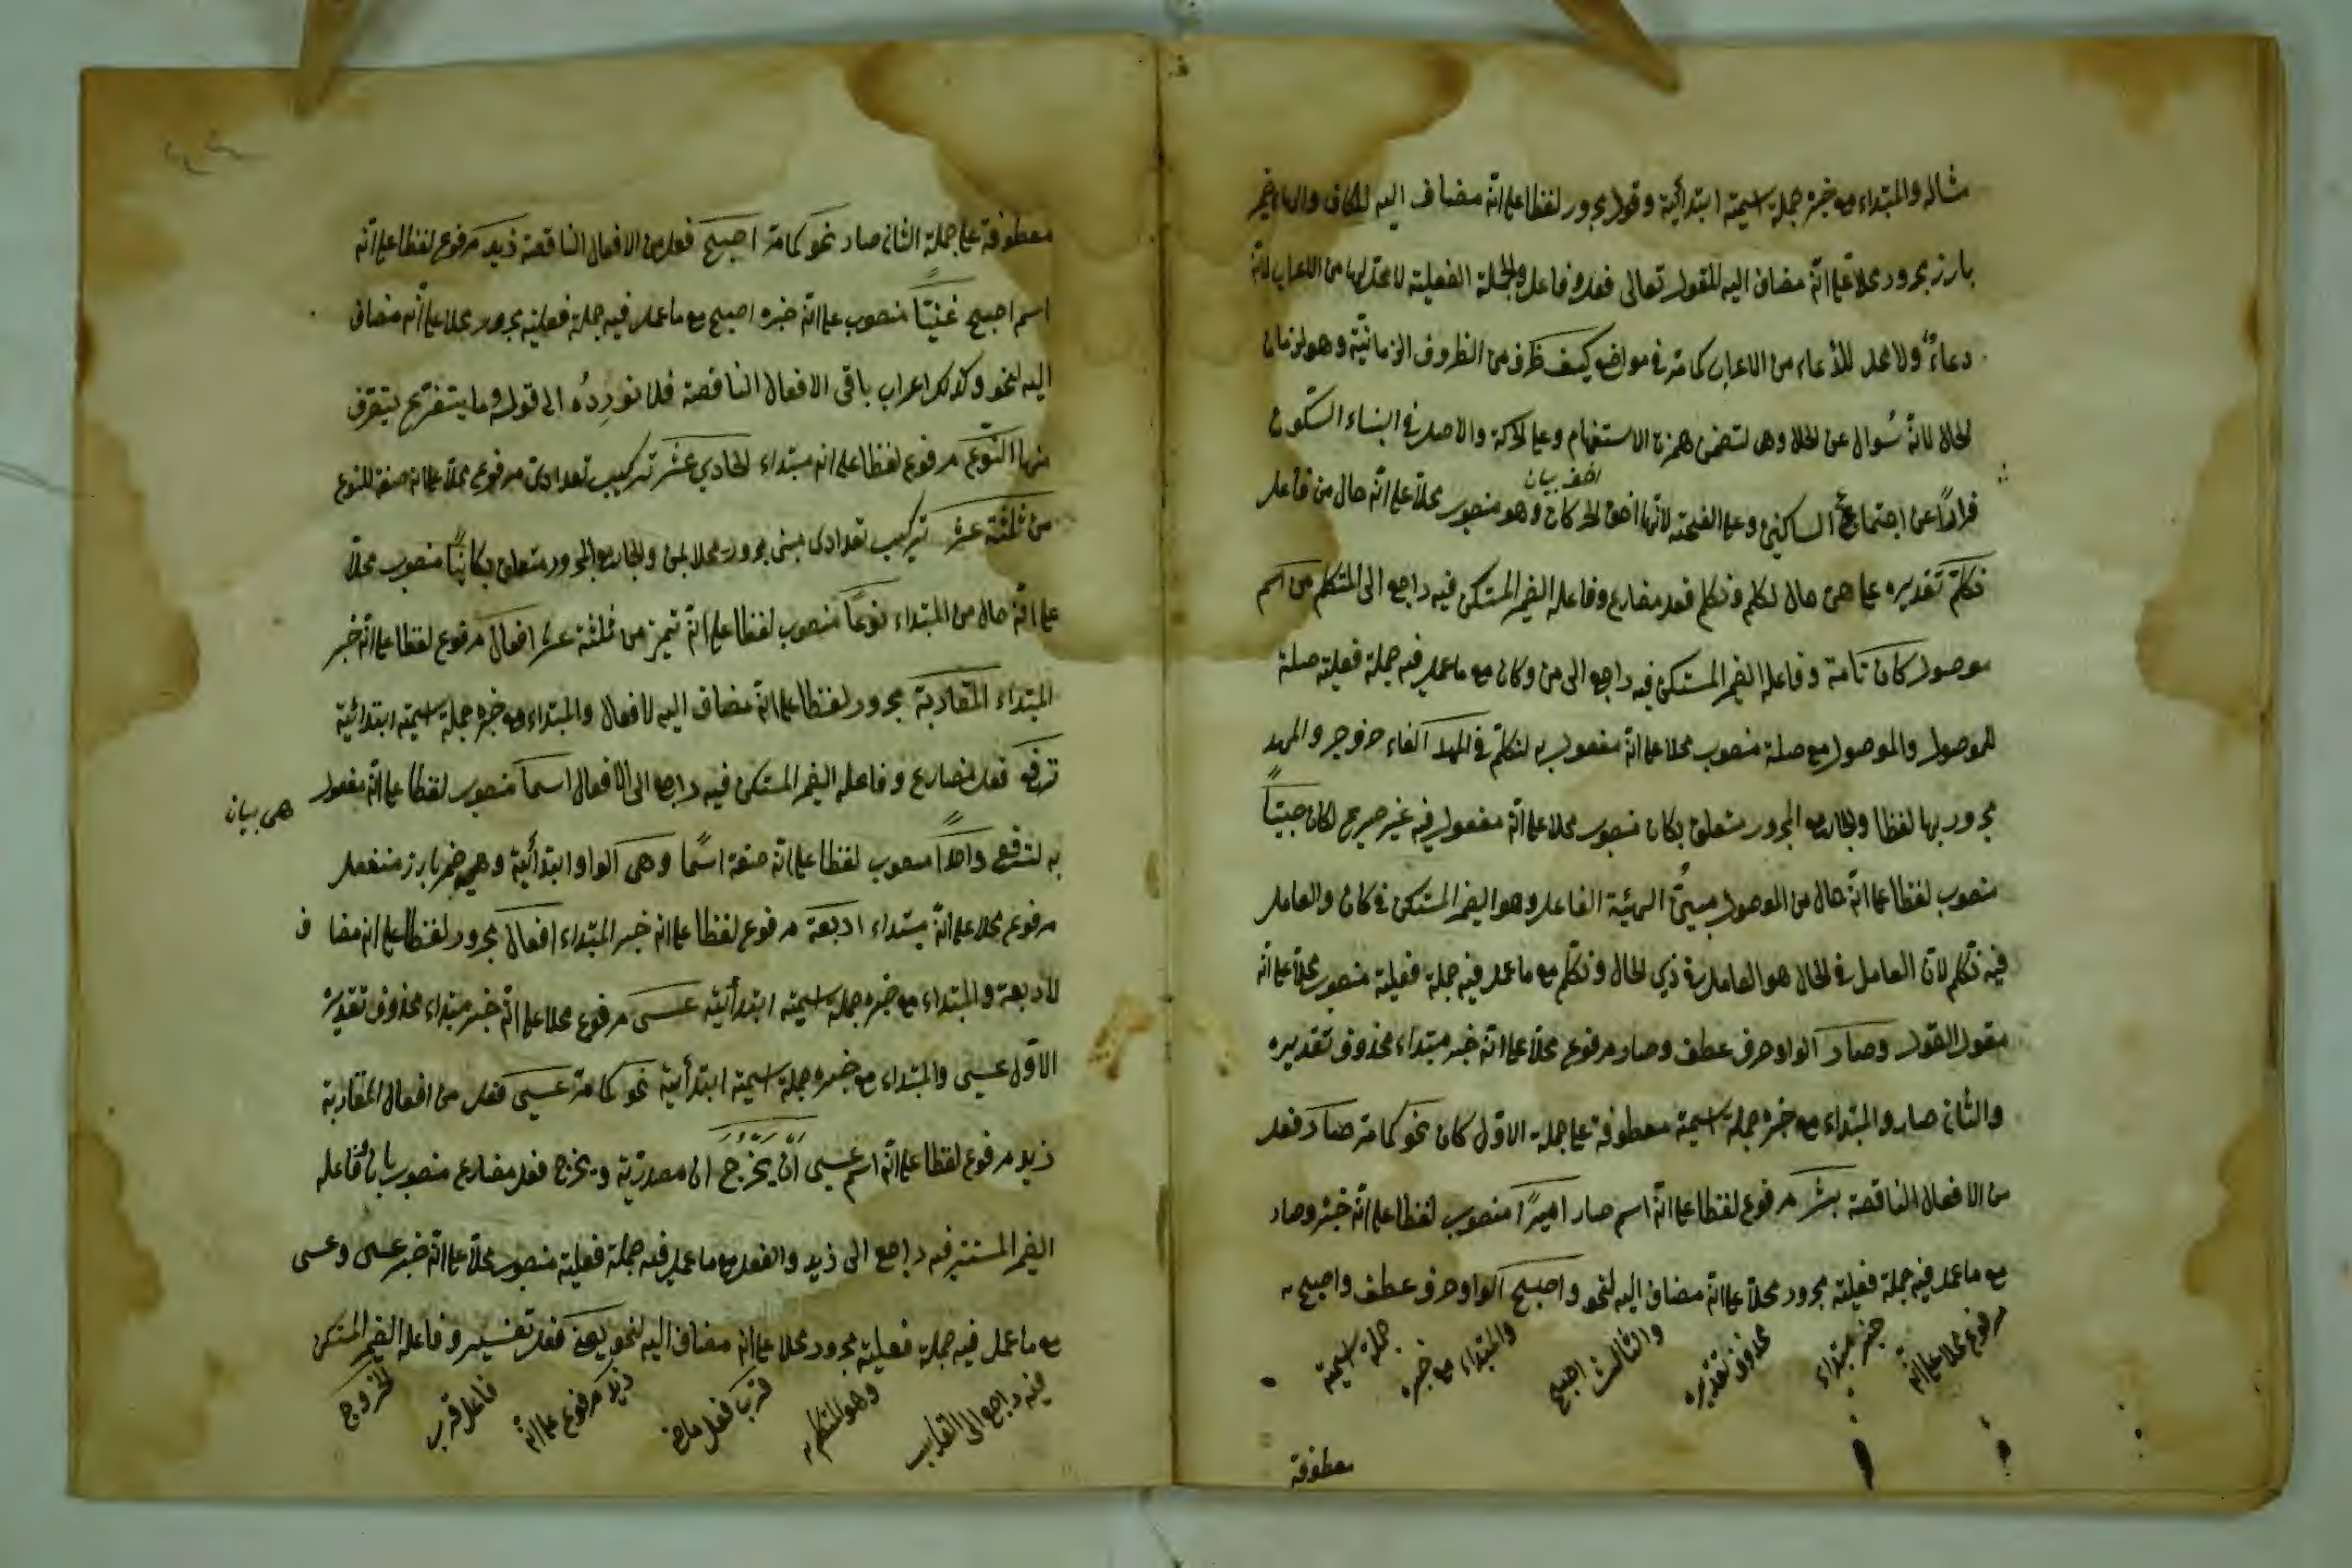 مثاله والمبتداء مع خبره جملة اسمية ابتدائية وقول مجرور لفظا على انه مضاف اليه لكاف والهاء ضمير
بارز مجرور محلا على انه مضاف اليه للقول تعالى فعل وفاعل والجملة الفعلية لا محل لها من الاعراب لانه
دعاء ولا محل للدعاء من الاعراب كما مر في مواضع كيف ظرف من الظروف الزمانية وهو لزمان
الحال لانه سؤال عن الحال وهى لتضمن همزة الاستفهام وعلى الحركة والاصل في البناء السكون
فرارا عن اجتماع الساكنين وعلى الفتحة لانها اخف الحركات وهو منصوب محلا على انه حال من فاعل
اخف بيان
نكلم تقديره على اى حال نكلم ونكلم فعل مضارع وفاعله الضمير المستكن فيه راجع الى المتكلم من اسم
موصول كان تامة وفاعله الضمير المستكن فيه راجع الى من وكان مع ما عمل فيه جملة فعلية صلة
للموصول والموصول مع صلة منصوب محلا على انه مفعول به لنكلم في المهد الفاء حرف جر والمهد
مجرور بها لفظا والجار مع المجرور متعلق بكان منصوب محلا على انه مفعول فيه غير صريح لكان صبيا
منصوب لفظا على انه حال من الموصول مبين الهيئة الفاعل وهو الضمير المستكن في كان والعامل
فيه نكلم لان العامل في الحال هو العامل في ذي الحال ونكلم مع ما عمل فيه جملة فعلية منصوب محلا على انه
مقول القول وصار الواو حرف عطف وصار مرفوع محلا على انه خبر مبتداء محذوف تقديره
والثاني صار والمبتداء مع خبره جملة اسمية معطوفة على جملة الاول كان نحو كما مر صار فعل
من الافعال الناقصة بشر مرفوع لفظا على انه اسم صار اميرا منصوب لفظا على انه خبره وصار
مع ما عمل فيه جملة فعلية مجرور محلا على انه مضاف اليه لنحو واصبح الواو حرف عطف واصبح
مرفوع محلا على انه
خبر مبتداء
محذوف تقديره
والثالث اصبح
والمبتداء مع خبره
جملة اسمية
معطوفة
معطوفة على جملة الثاني صار نحو كما مر اصبح فعل من الافعال الناقصة زيد مرفوع لفظا على انه
اسم اصبح غنيا منصوب على انه خبره اصبح مع ما عمل فيه جملة فعلية مجرور محلا على انه مضاف
اليه لنحو وكذلك اعراب باقي الافعال الناقصة فلا نورده الى قوله وما يتصرف
منها النوع مرفوع لفظا على انه مبتداء الحادي عشر تركيب تعدادى مرفوع محلا على انه صفة للنوع
من ثلثة عشر تركيب تعدادى مبنى مجرور محلا بمن والجار مع المجرور متعلق بكائنا منصوب محلا
على انه حال من المبتداء نوعا منصوب لفظا على انه تميز من ثلثة عشر افعال مرفوع لفظا على انه خبر
المبتداء المقاربة مجرور لفظا على انه مضاف اليه لافعال والمبتداء مع خبره جملة اسمية ابتدائية
ترفع فعل مضارع وفاعله الضمير المستكن فيه راجع الى الافعال اسما منصوب لفظا على انه مفعول
به لترفع واحدا منصوب لفظا على انه صفة اسما وهى الواو ابتدائية وهى ضمير بارز منفصل
هى بيان
مرفوع محلا على انه مبتداء اربعة مرفوع لفظا على انه خبر المبتداء افعال مجرور لفظا على انه مضاف
لاربعة والمبتداء مع خبره جملة اسمية ابتدائية عسى مرفوع محلا على انه خبر مبتداء محذوف تقديره
الاول عسى والمبتداء مع خبره جملة اسمية ابتدائية نحو كما مر عسى فعل من افعال المقاربة
زيد مرفوع لفظا على انه اسم عسى ان يخرج ان مصدرية ويخرج فعل مضارع منصوب بان وفاعله
الضمير المستتر فيه راجع الى زيد والفعل مع ما عمل فيه جملة فعلية منصوب محلا على انه خبر عسى وعسى
مع ما عمل فيه جملة فعلية مجرور محلا على انه مضاف اليه لنحو يعنى فعل تفسير وفاعله الضمير المستكن
فيه راجع الى القارب
وهو المتكلم
قرب فعل ماض
زيد مرفوع على انه
فاعل قرب
الخروج